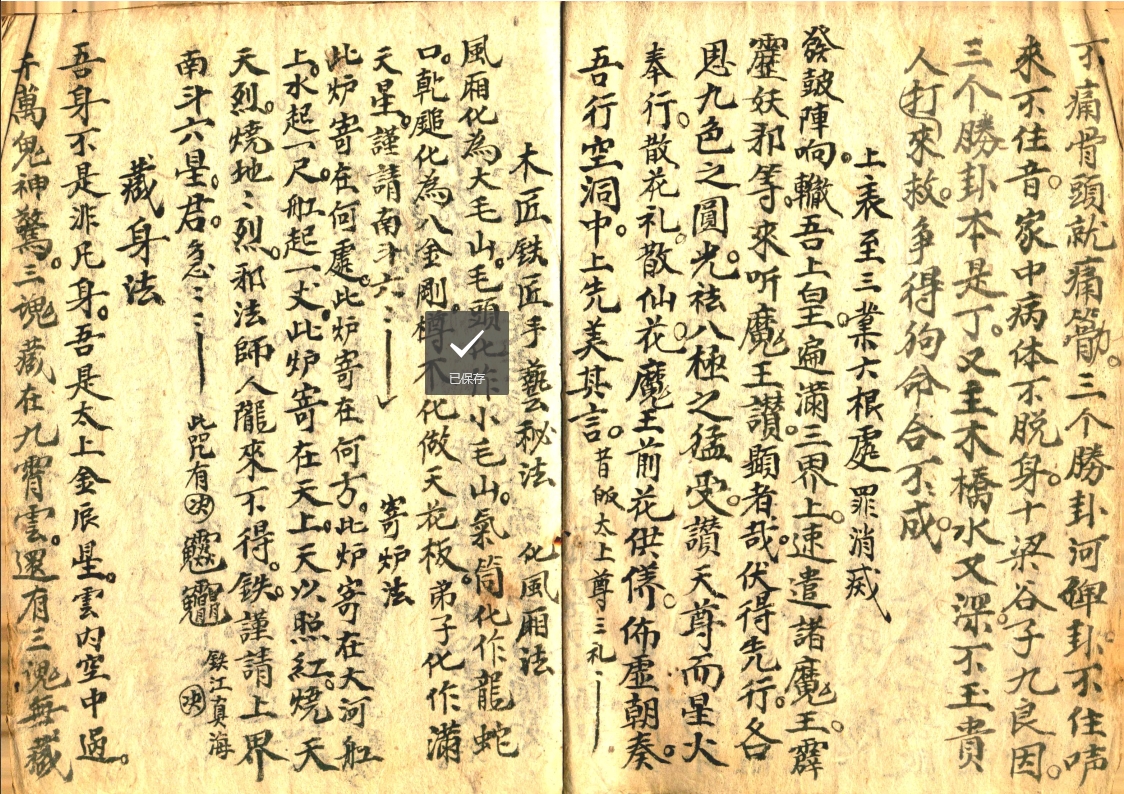 不痛骨頭就痛筋。三个勝卦河碑卦。不住唷
来不住音。家中病体不脱身。十梁谷子九良因。
三个勝卦本是丁。又主木橋水又深。不玉貴
人打來救。爭得狗命合不成。
上表 至三業六根處 罪消烕
發鼓陣响。轍吾上皇。遍滿三界上。速遣諸魔王。霹
靂妖邪等。來听魔王讃。顕者哉。伏得先行。各
恩九色之圓光。祛八極之猛受。讃天尊而星火
奉行。散花礼。散仙花。魔王前花供俻。佈虛朝奏。
吾行空洞中。上先美其言。昔皈太上尊三礼
木匠鉄匠手藝秘法 化風厢法
風厢化為大毛山。毛頭化作小毛山。氣筒化作龍蛇
口。乾䭔化為八金剛。不化做天花板。弟子化作滿
天星。謹請南斗六〻
寄炉法
此炉寄在何處。此炉寄在何方。此炉寄在大河舡
上。水起一尺。舡起一丈。此炉寄在天上。天以照紅。燒天
天烈。燒地〻烈。邪法師人隴來不得。鉄。謹請上界
南斗六星君。急〻〻 此咒有决 鉄江真海 决
藏身法
吾身不是非凡身。吾是太上金辰星。雲内空中過。
千萬鬼神驚。三魂藏在九霄雲。還有三魂無藏
已保存